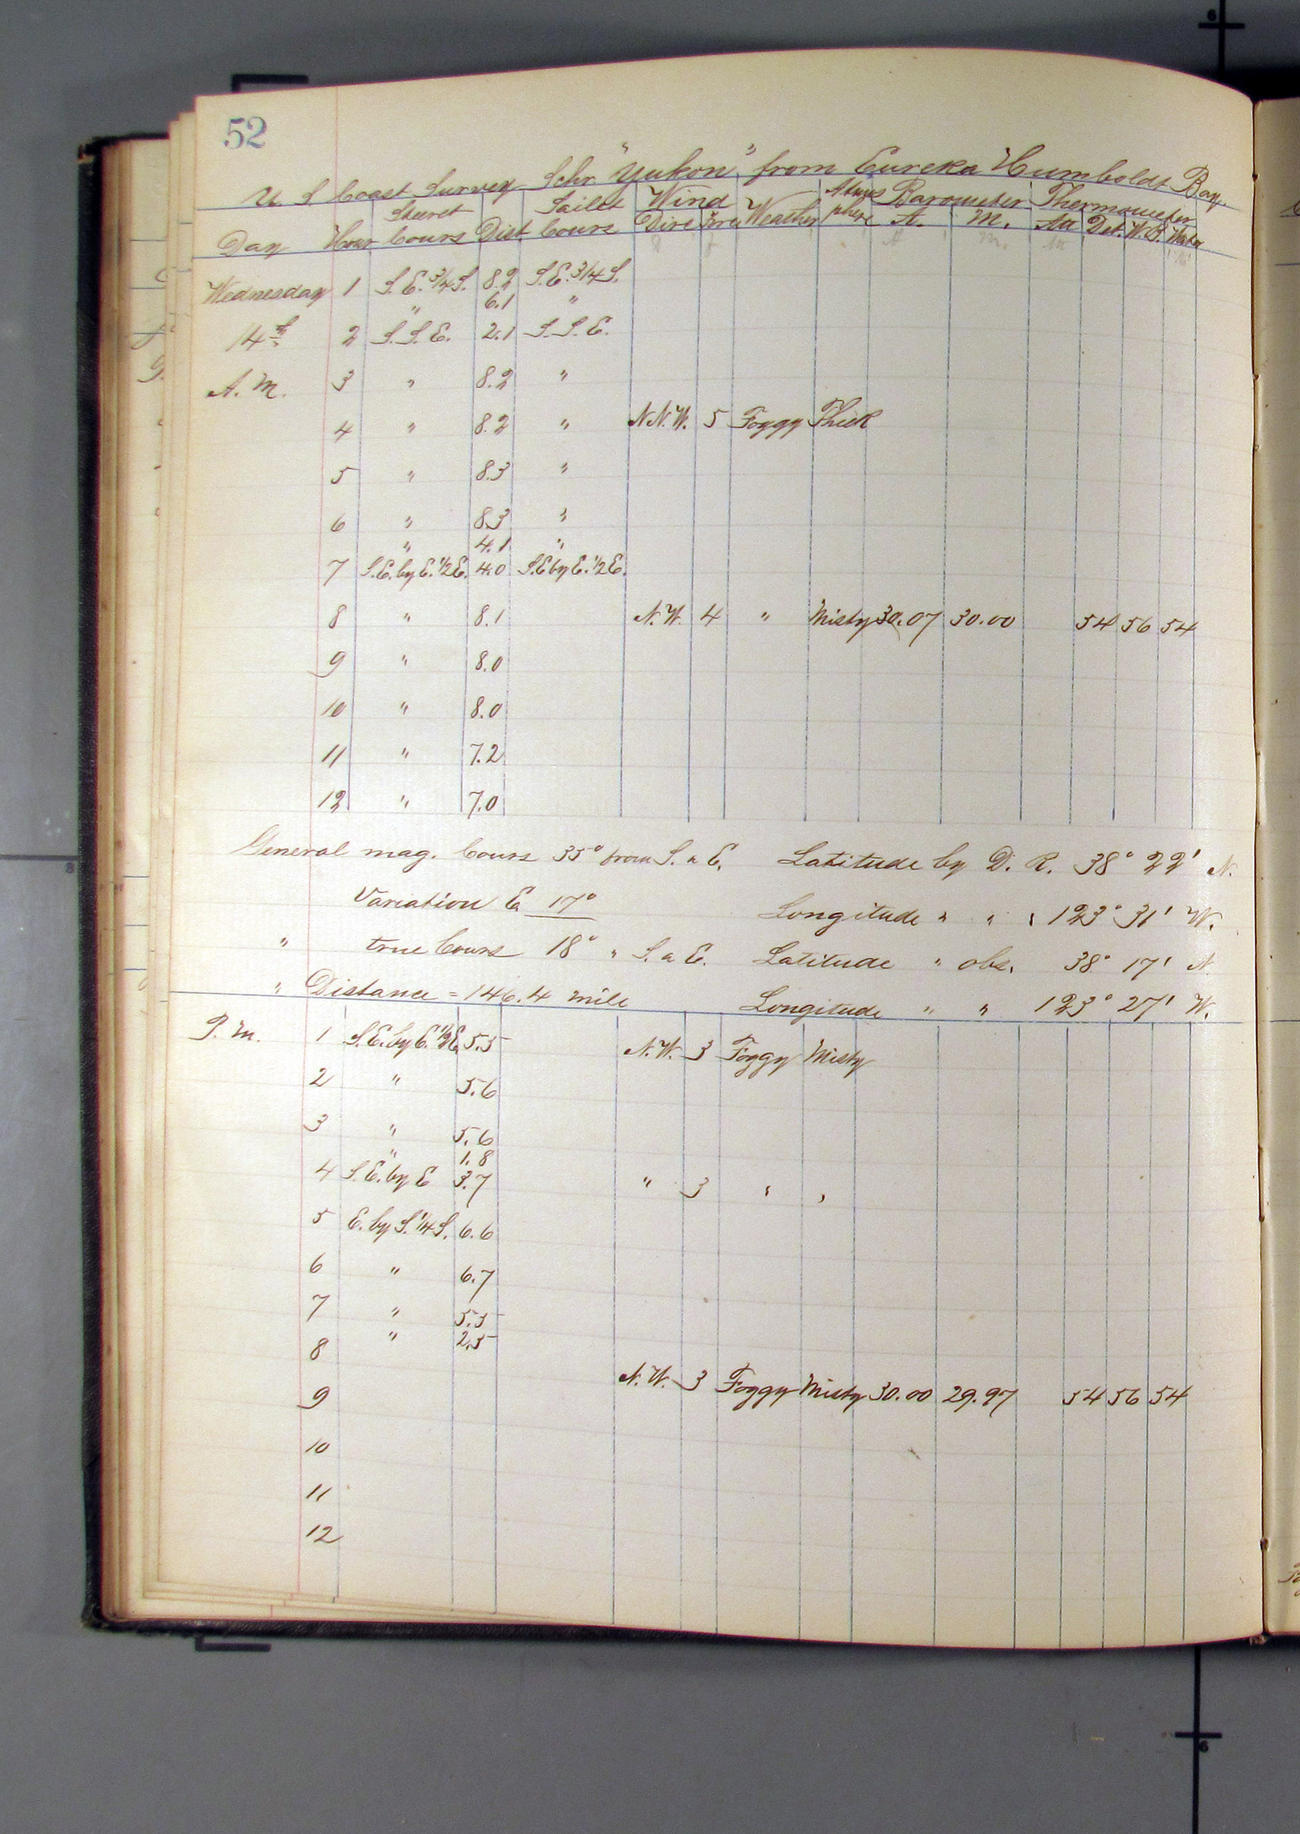 52
U S Coast Survey Schr "Yukon" from Eureka Humboldt Bay
Steeret Sailet Wind Atmos Barometer Thermometer
Day Hour Cours Dist Cours Dire Force Weather phere A. M. Att Det. W.B. Water
Wednesday 1 S.E.3/4S. 8.2 S.E.3/4S.
" 6.1 "
14th 2 S.S.E. 2.1 S.S.E.
A.M. 3 " 8.2 "
4 " 8.2 " N.N.W. 5 Foggy Thick
5 " 8.3 "
6 " 8.3 "
" 4.1 "
7 S.E.by E.1/2E. 4.0 S.E by E.1/2E.
8 " 8.1 N.W. 4 " Misty 30.07 30.00 54 56 54
9 " 8.0
10 " 8.0
11 " 7.2
12 " 7.0
General mag. Cours 35° from S. a E. Latitude by D. R. 38° 22' N.
Variation E 17° Longitude " " " 123° 31' W.
" true Cours 18° " S. a E. Latitude " obs. 38° 17' N.
" Distance = 146.4 mile Longitude " " 123° 27' W.
P.M. 1 S.E.by E.1/2E 5.5 N.W. 3 Foggy Misty
2 " 5.6
3 " 5.6
" 1.8
4 S.E.by E 3.7 " 3 " "
5 E.by S.1/4S. 6.6
6 " 6.7
7 " 5.5
" 2.5
8
N.W. 3 Foggy Misty 30.00 29.97 54 56 54
9
10
11
12